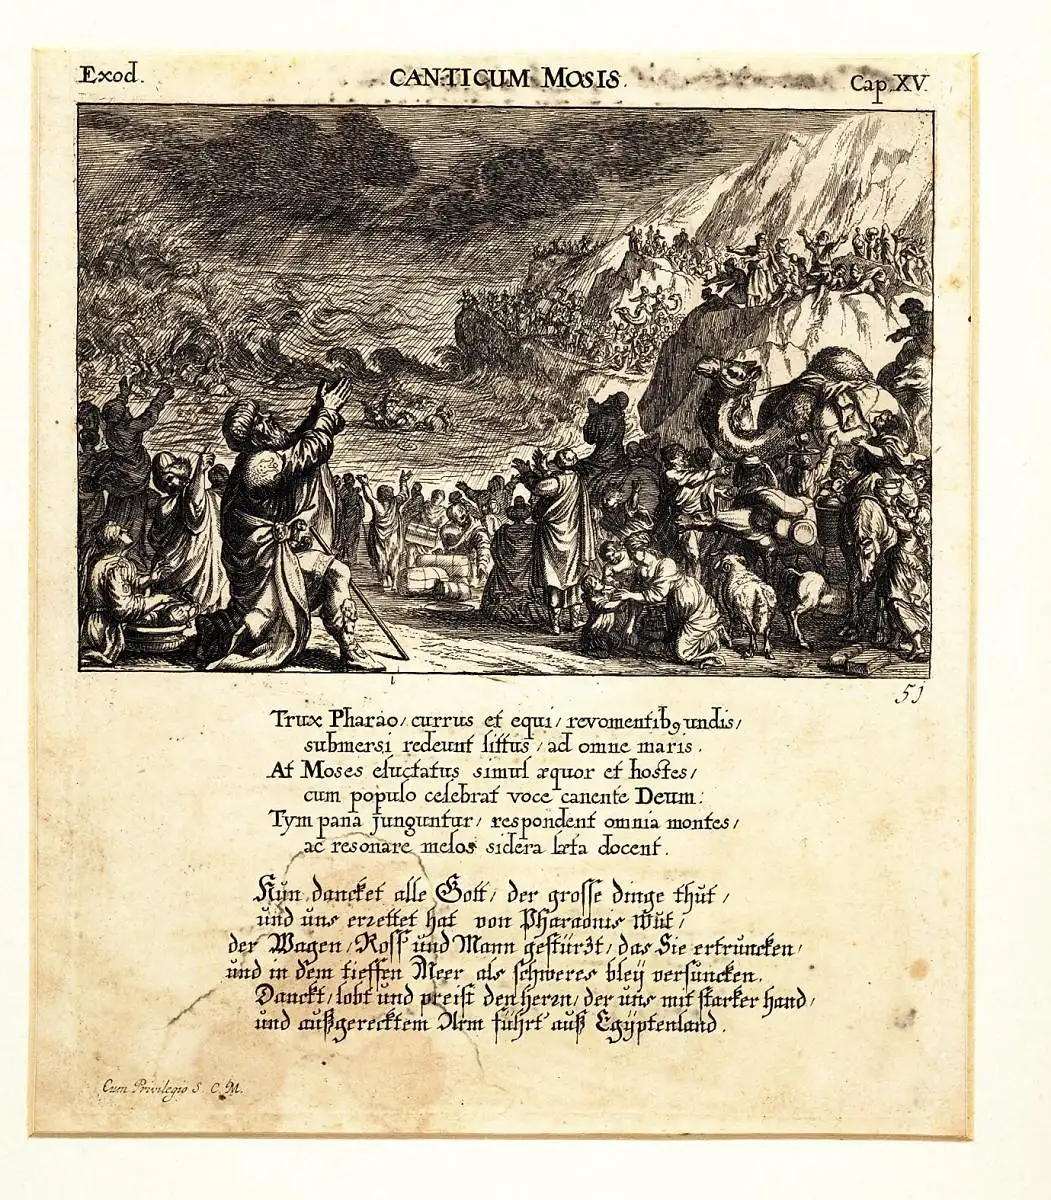 Exod.
CANTICUM MOSIS.
Cap. XV.
51
Trux Pharao/ currus et equi/ revomentib9 undis/
submersi redeunt littus/ ad omne maris.
At Moses eluctatus simul æquor et hostes/
cum populo celebrat voce canente Deum:
Tympana junguntur/ respondent omnia montes/
ac resonare melos sidera læta docent.
Nun dancket alle Gott/ der grosse dinge thut/
und uns errettet hat von Pharaonis Wüt/
der Wagen/ Ross und Mann gestürzt/ das Sie ertruncken/
und in dem tieffen Meer als schweres bleÿ versuncken.
Danckt/ lobt und preist den herrn/ der uns mit starker hand/
und außgerecktem Arm führt auß Egÿptenland.
Cum Privilegio S. C. M.